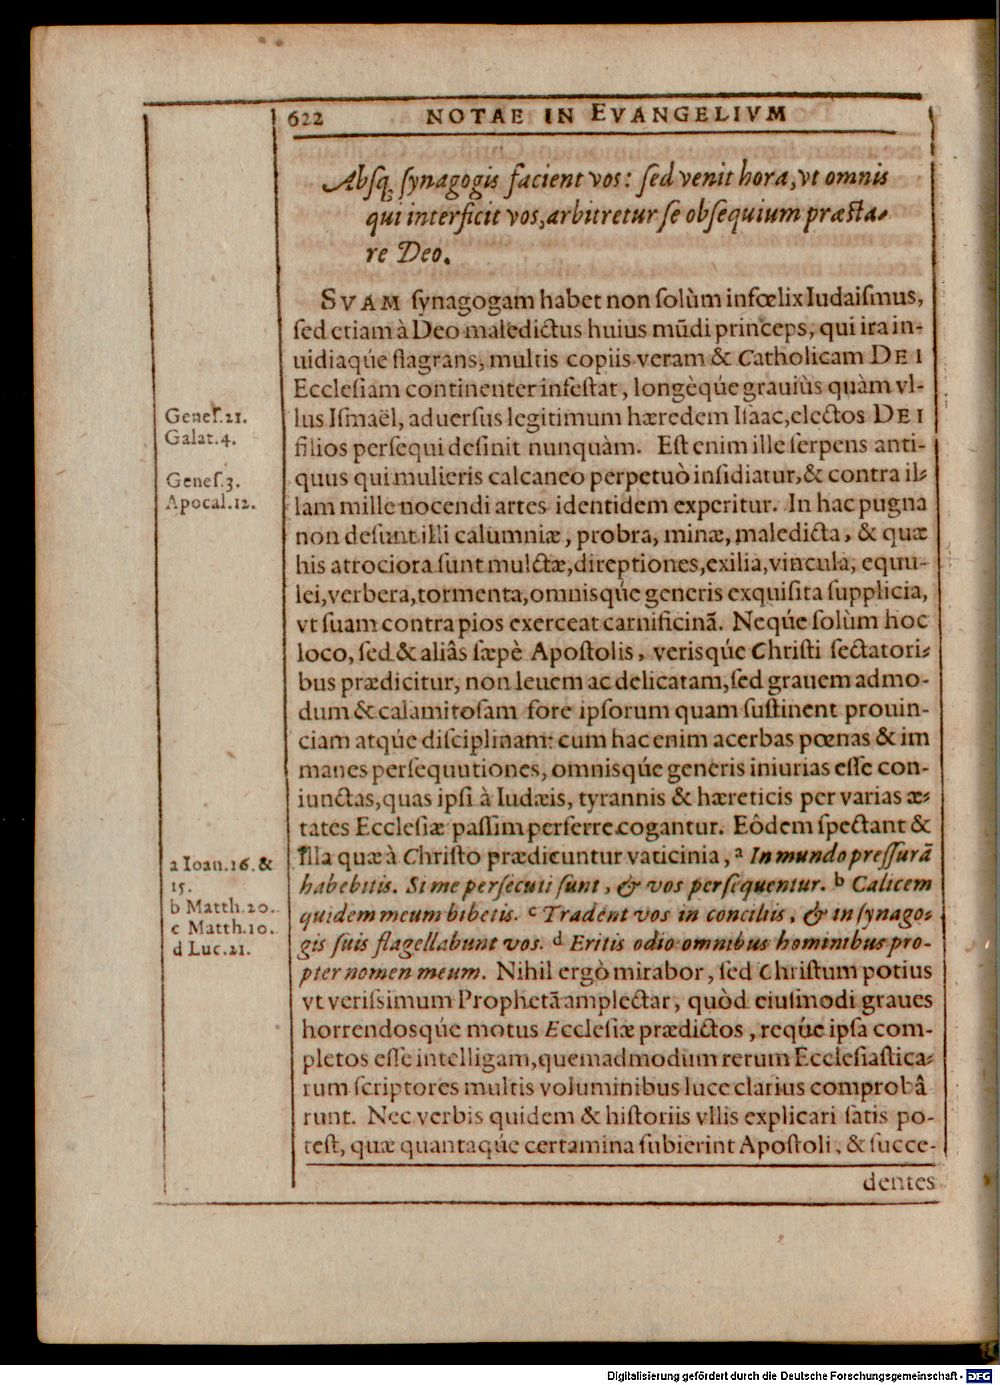 622 NOTAE IN EVANGELIVM
Absq; synagogis facient vos: sed venit hora, vt omnis
qui interficit vos, arbitretur se obsequium præsta-
re Deo.
SVAM synagogam habet non solùm infœlix Iudaismus,
sed etiam à Deo maledictus huius mũdi princeps, qui ira in-
uidiaqúe flagrans, multis copiis veram & Catholicam DEI
Ecclesiam continenter infestat, longèqúe grauiùs quàm vl-
lus Ismaël, aduersus legitimum hæredem Isaac, electos DEI
filios persequi desinit nunquàm. Est enim ille serpens anti-
quus qui mulieris calcaneo perpetuò insidiatur, & contra il-
lam mille nocendi artes identidem experitur. In hac pugna
non desunt illi calumniæ, probra, minæ, maledicta, & quæ
his atrociora sunt mulctæ, direptiones, exilia, vincula, equu-
lei, verbera, tormenta, omnisqúe generis exquisita supplicia,
vt suam contra pios exerceat carnificinã. Neqúe solùm hoc
loco, sed & aliâs sæpè Apostolis, verisqúe Christi sectatori-
bus prædicitur, non leuem ac delicatam, sed grauem admo-
dum & calamitosam fore ipsorum quam sustinent prouin-
ciam atqúe disciplinam: cum hac enim acerbas pœnas & im
manes persequutiones, omnisqúe generis iniurias esse con-
iunctas, quas ipsi à Iudæis, tyrannis & hæreticis per varias æ-
tates Ecclesiæ passim perferre cogantur. Eôdem spectant &
illa quæ à Christo prædicuntur vaticinia, a In mundo pressurã
habebitis. Si me persecuti sunt, & vos persequentur. b Calicem
quidem meum bibetis. c Tradent vos in conciliis, & in synago-
gis suis flagellabunt vos. d Eritis odio omnibus hominibus pro-
pter nomen meum. Nihil ergò mirabor, sed Christum potius
vt verissimum Prophetã amplectar, quòd eiusmodi graues
horrendosqúe motus Ecclesiæ prædictos, reqúe ipsa com-
pletos esse intelligam, quemadmodum rerum Ecclesiastica-
rum scriptores multis voluminibus luce clarius comprobâ
runt. Nec verbis quidem & historiis vllis explicari satis po-
test, quæ quantaqúe certamina subierint Apostoli, & succe-
dentes
Genes.21.
Galat.4.
Genes.3.
Apocal.12.
a Ioan.16. &
15.
b Matth.20.
c Matth.10.
d Luc.21.
Digitalisierung gefördert durch die Deutsche Forschungsgemeinschaft - DFG